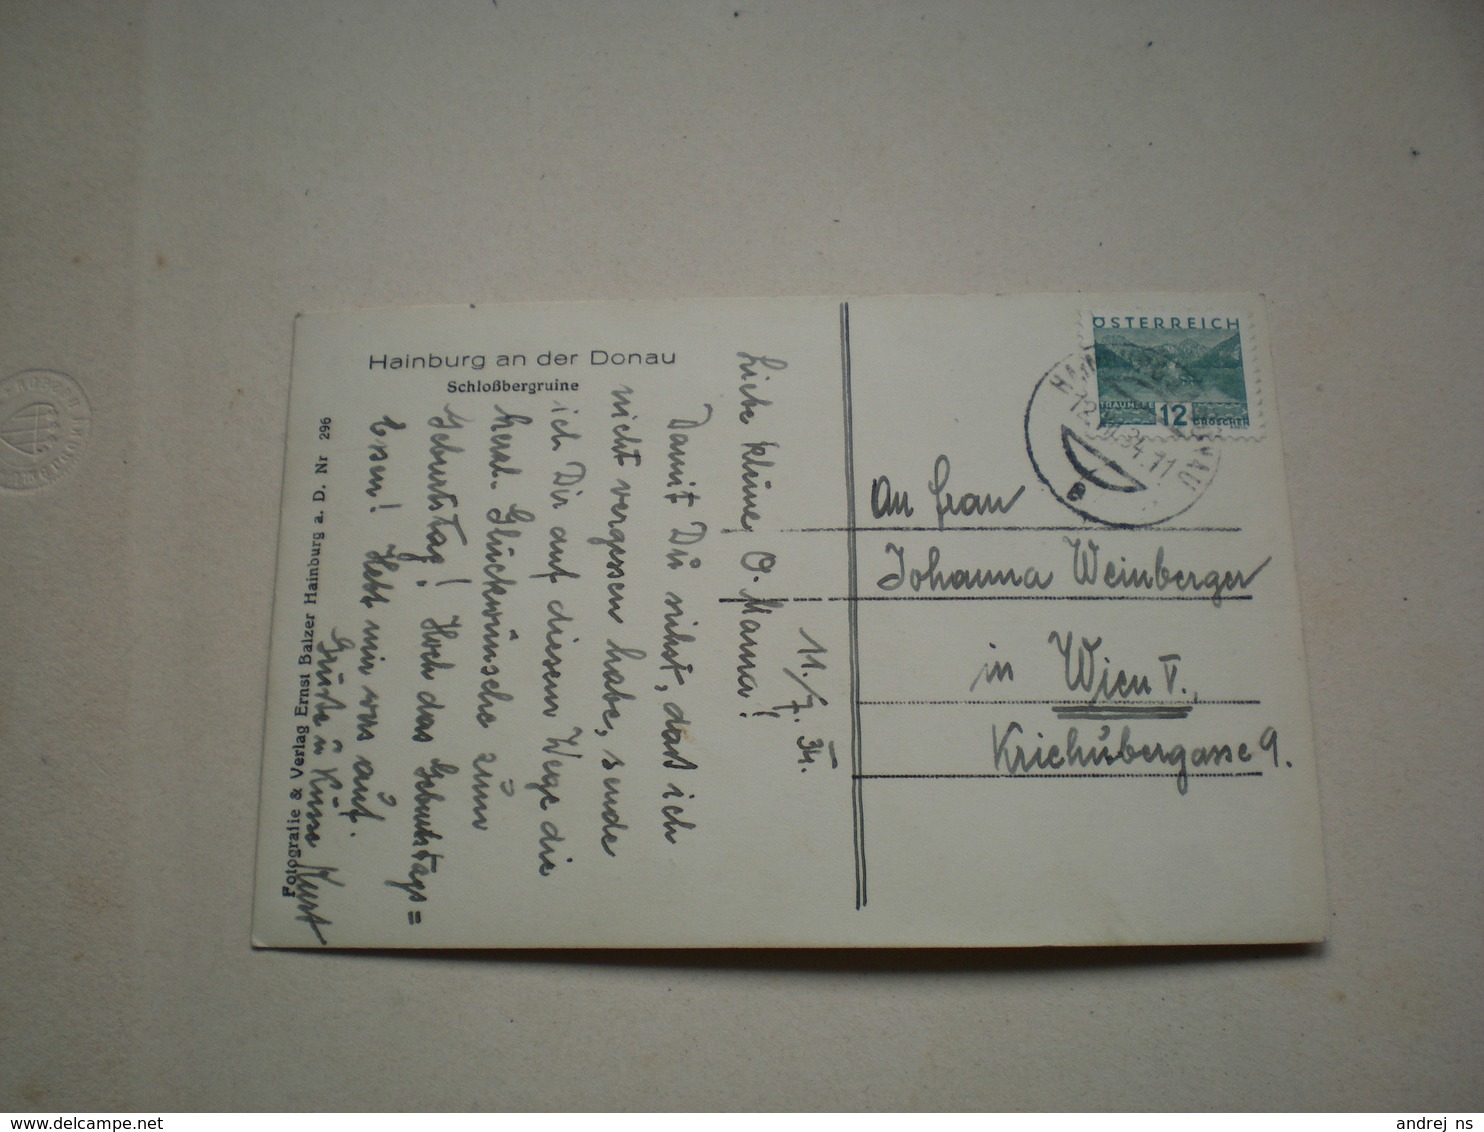 Hainburg an der Donau
Schloßbergruine
Fotografie & Verlag Ernst Balzer Hainburg a. D. Nr 296
11./7. 34.
Liebe kleine O. Mama!
Damit Du siehst, daß ich
nicht vergessen habe, sende
ich Dir auf diesem Wege die
herzl. Glückwünsche zum
Geburtstag! Hoch das Geburtstags=
Essen! Hebt mir was auf.
Grüße u Küsse Kurt
ÖSTERREICH
TRAUNSEE 12 GROSCHEN
An Frau
Johanna Weinberger
in Wien V.,
Kriehubergasse 9.
delcampe.net
andrej_ns